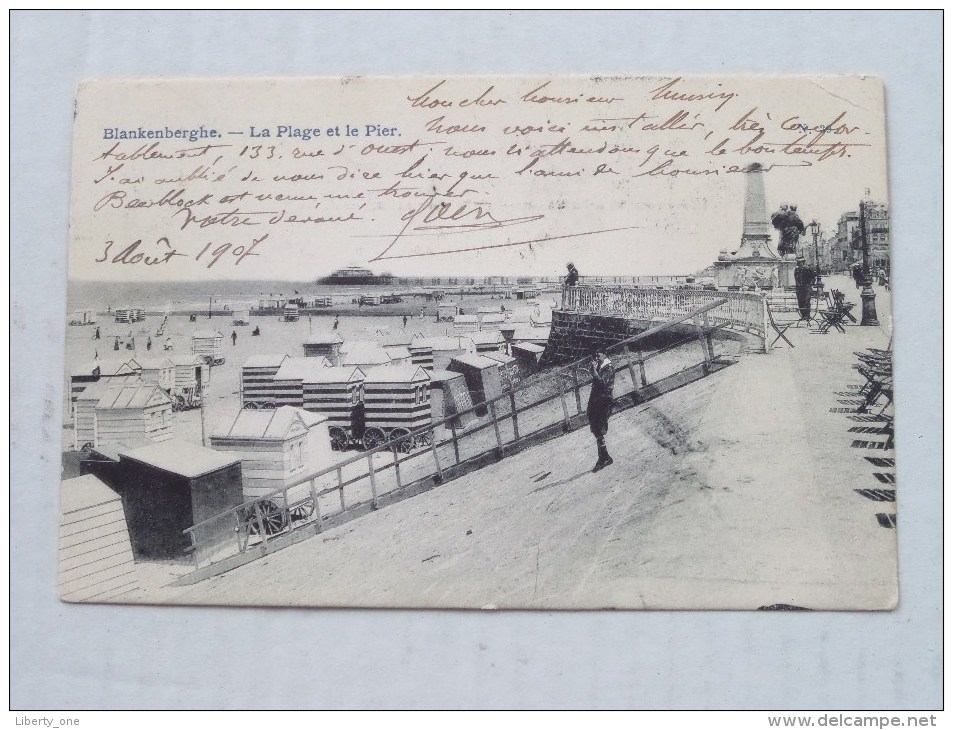 Mon cher Monsieur
Blankenberghe. — La Plage et le Pier.
Nous voici installér, très confor-
tablement, 133. rue d'Ouest; nous n'attendons que le bon temps.
J'ai oublié de vous dire hier que l'ami de Monsieur
Beerblock est venu me trouver.
Votre dévoué.
3 Août 1907
Liberty_one
www.delcampe.net